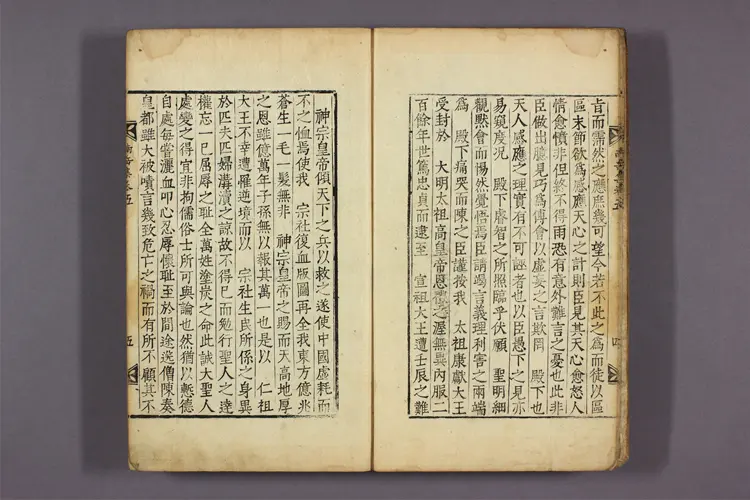 旨而霈然之應庶幾可望今若不此之爲而徒以區
區末節欲爲感應天心之計則臣見其天心愈怒人
情愈憤非但終不得雨恐有意外難言之憂也此非
臣做出臆見巧爲傳會以虛妄之言欺罔 殿下也
天人感應之理實有不可誣者也以臣愚下之見亦
易窺度况 殿下睿智之所照臨乎伏願 聖明細
觀默會而惕然覺悟焉臣請竭言義理利害之兩端
爲 殿下痛哭而陳之臣謹按我 太祖康獻大王
受封於 大明太祖高皇帝恩禮之渥無異內服二
百餘年世篤忠貞而逮至 宣祖大王遭壬辰之難
神宗皇帝傾天下之兵以救之遂使中國虛耗而
不之恤焉使我 宗社復血版圖再全我東方億兆
蒼生一毛一髮無非 神宗皇帝之賜而天高地厚
之恩雖億萬年子孫無以報其萬一也是以 仁祖
大王不幸遭罹逆境而以 宗社生民所係之身異
於匹夫匹婦溝瀆之諒故不得已而勉行聖人之達
權忘一己屈辱之耻全萬姓塗炭之命此誠大聖人
處變之得宜非拘儒俗士所可與論也然猶以慙德
自處每嘗灑血叩心忍辱懷耻至於間途送僧陳奏
皇都雖大被嘖言幾致危亡之禍而有所不顧其不
五